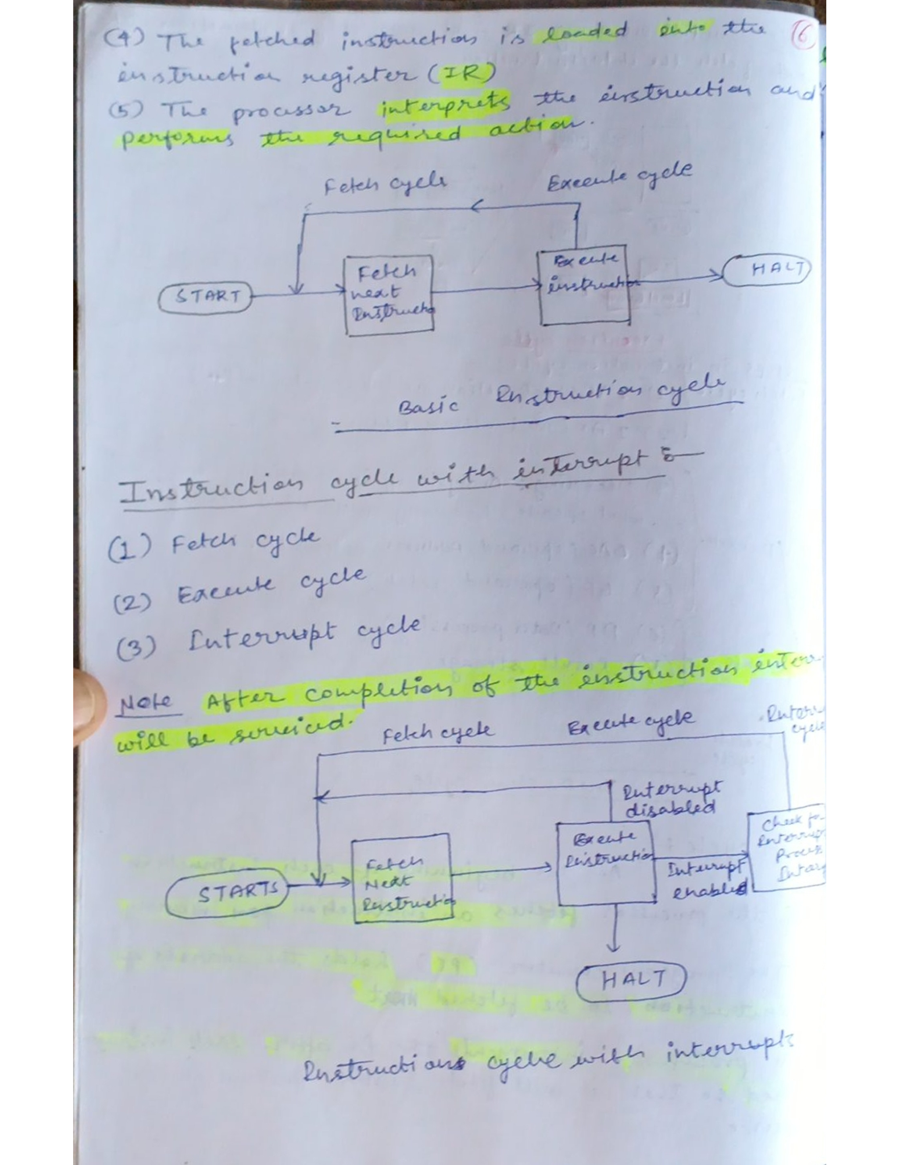 (4) The fetched instruction is loaded into the
16
instruction register (IR)
(5) The processor interprets the instruction and
performs the required action.
Fetch cycle
Execute cycle
START
Fetch
next
Instructn
Execute
instruction
HALT
Basic Instruction cycle
Instruction cycle with interrupt :-
(1) Fetch cycle
(2) Execute cycle
(3) Interrupt cycle
Note After completion of the instruction inter
will be serviced.
Fetch cycle
Execute cycle
Inter
cycle
Interrupt
disabled
STARTS
Fetch
Next
Instruction
Execute
Instruction
Interrupt
enabled
Check for
Interrup
Process
HALT
Instructions cycle with interrupts